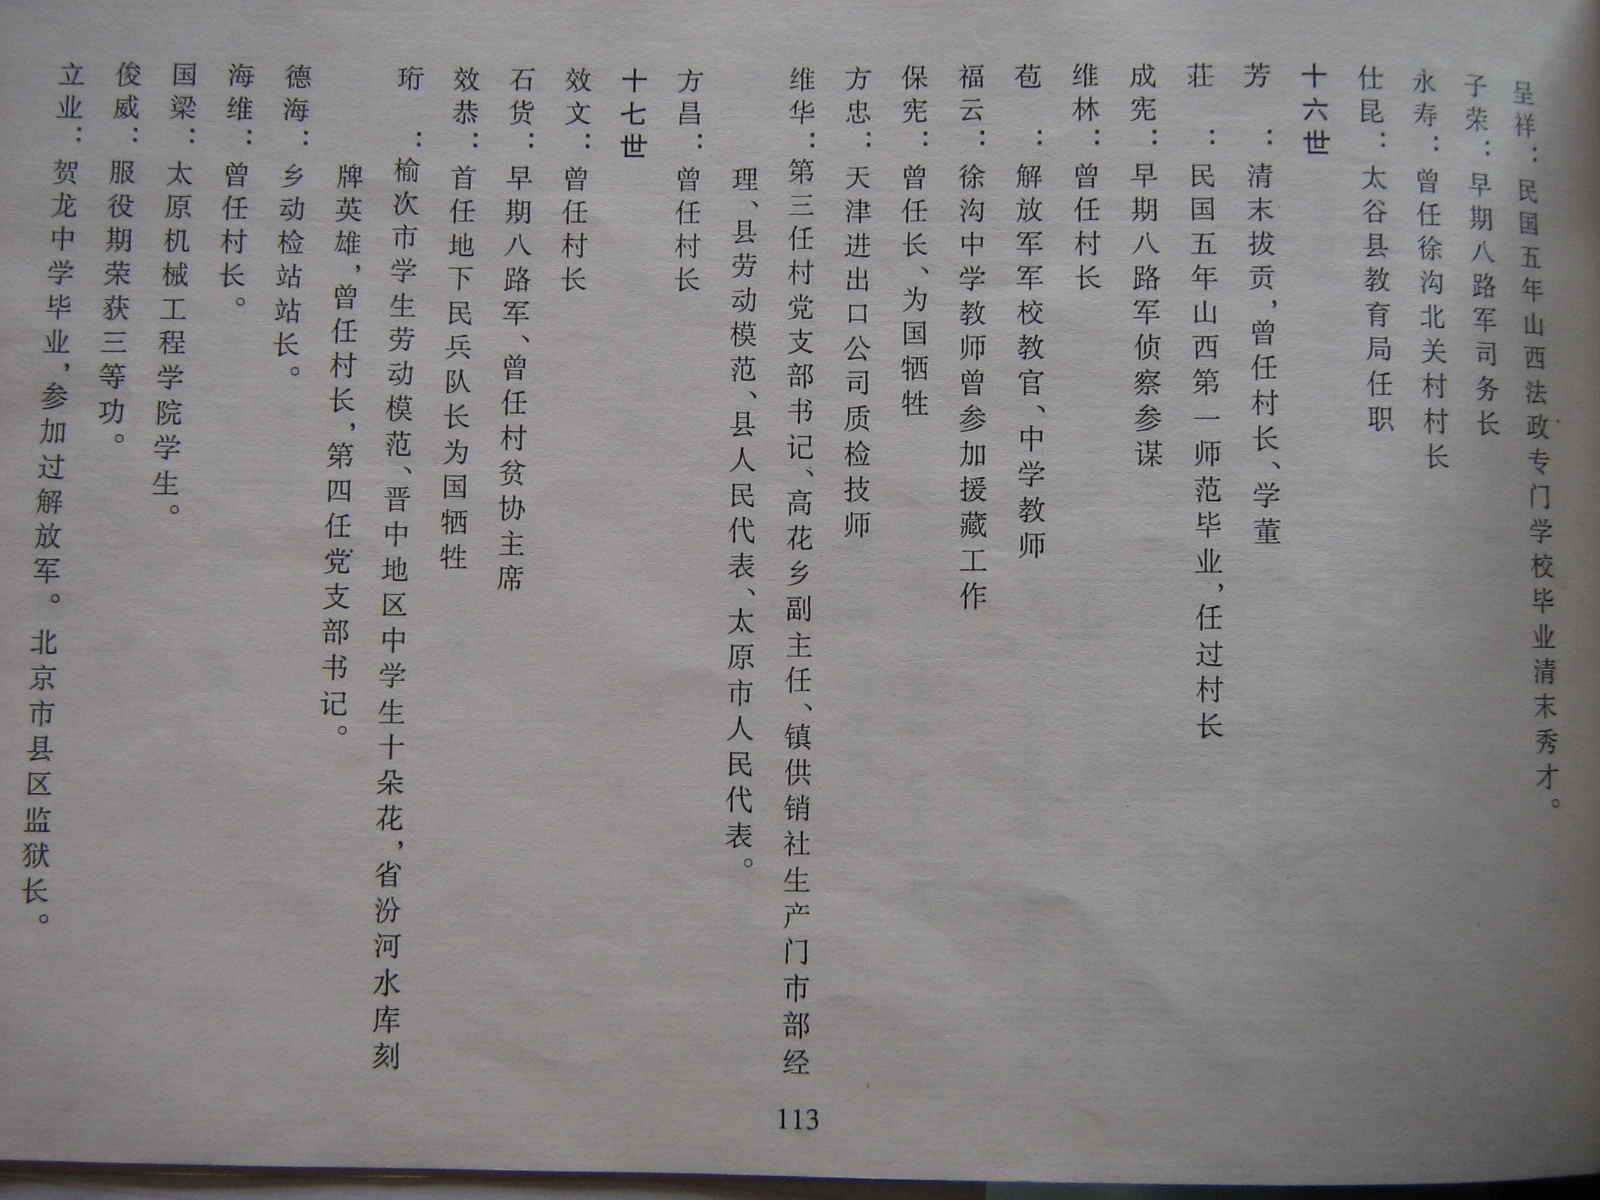 呈祥：民国五年山西法政专门学校毕业清末秀才。
子荣：早期八路军司务长
永寿：曾任徐沟北关村村长
仕昆：太谷县教育局任职
十六世
芳　：清末拔贡，曾任村长、学董
荘　：民国五年山西第一师范毕业，任过村长
成宪：早期八路军侦察参谋
维林：曾任村长
苞　：解放军军校教官、中学教师
福云：徐沟中学教师曾参加援藏工作
保宪：曾任长、为国牺牲
方忠：天津进出口公司质检技师
维华：第三任村党支部书记、高花乡副主任、镇供销社生产门市部经
理、县劳动模范、县人民代表、太原市人民代表。
方昌：曾任村长
十七世
效文：曾任村长
石货：早期八路军、曾任村贫协主席
效恭：首任地下民兵队长为国牺牲
珩　：榆次市学生劳动模范、晋中地区中学生十朵花，省汾河水库刻
牌英雄，曾任村长，第四任党支部书记。
德海：乡动检站站长。
海维：曾任村长。
国梁：太原机械工程学院学生。
俊威：服役期荣获三等功。
立业：贺龙中学毕业，参加过解放军。北京市县区监狱长。
113